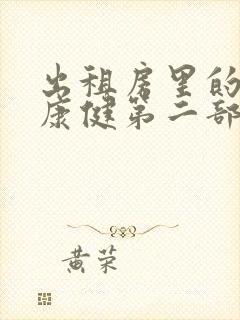 出租房里的
康健第二部
黄荣